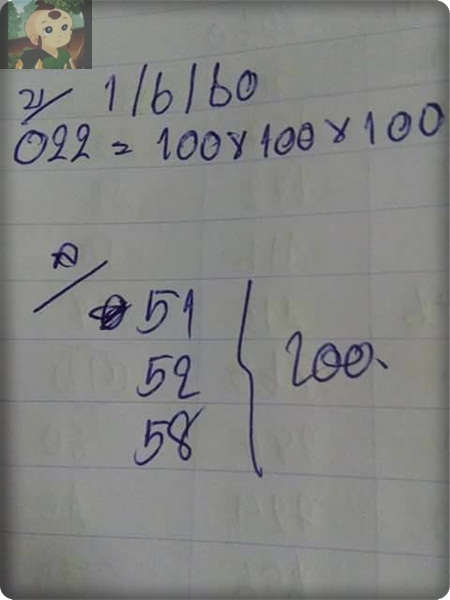 1/6/60
022 = 100 x 100 x 100
51
52
58
200.